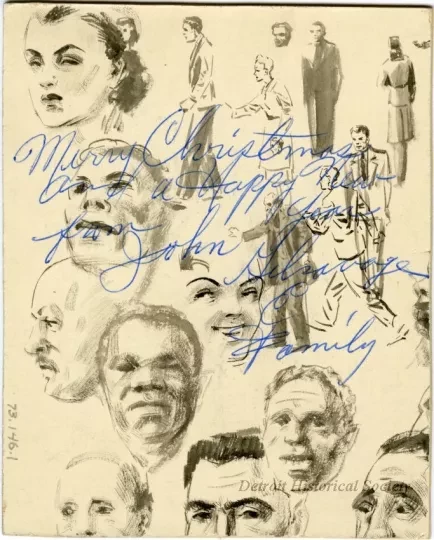 Merry Christmas
and a Happy New
Year
from John
& Family
73.146.1
Detroit Historical Society